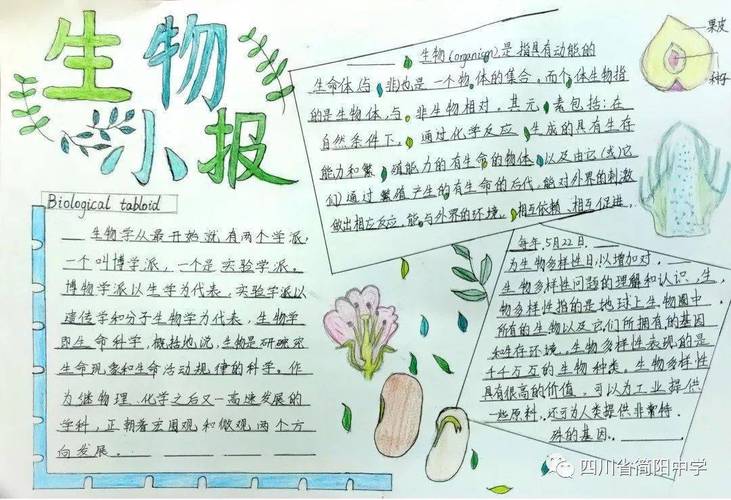 生物
小报
Biological tabloid
生物学从最开始就有两个学派,
一个叫博学派,一个是实验学派。
博物学派以生学为代表,实验学派以
遗传学和分子生物学为代表,生物学
即生命科学,概括地说,生物是研究
生命现象和生命活动规律的科学。作
为继物理、化学之后又一高速发展的
学科,正朝着宏观和微观两个方
向发展。
生物(organism)是指具有动能的
生命体(与非)也是一个物体的集合。而个体生物指
的是生物体,与非生物相对,其元素包括:在
自然条件下,通过化学反应生成的具有生存
能力和繁殖能力的有生命的物体以及由它(或)它
们)通过繁殖产生的有生命的后代,能对外界的刺激
做出相应反应,能与外界的环境相互依赖、相互促进,
果皮
种子
每年,5月22日,
为生物多样性日,以增加对
生物多样性问题的理解和认识,生
物多样性指的是地球上生物圈中
所有的生物以及它们所拥有的基因
和生存环境。生物多样性表现的是
千千万万的生物种类。生物多样性
具有很高的价值,可以为工业提供
一些原料,还可为人类提供非常特
殊的基因。
四川省简阳中学